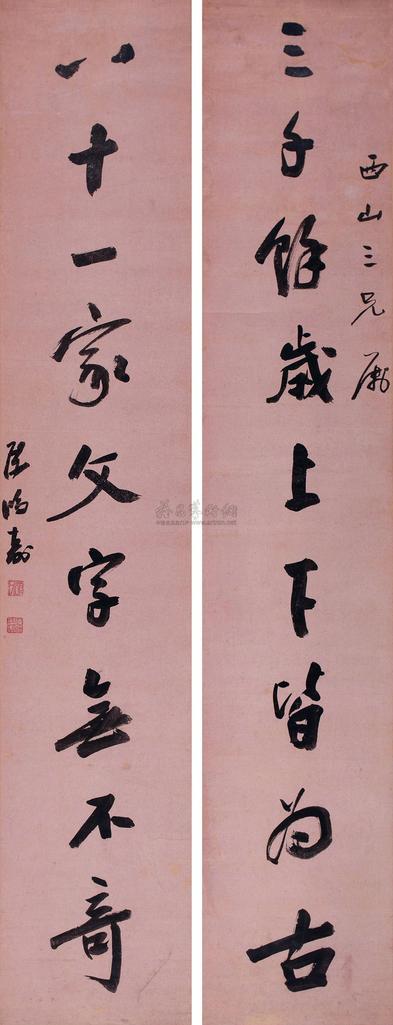 西山三兄屬
三千餘歲上下皆為古
八十一家文字無不奇
陳鴻壽